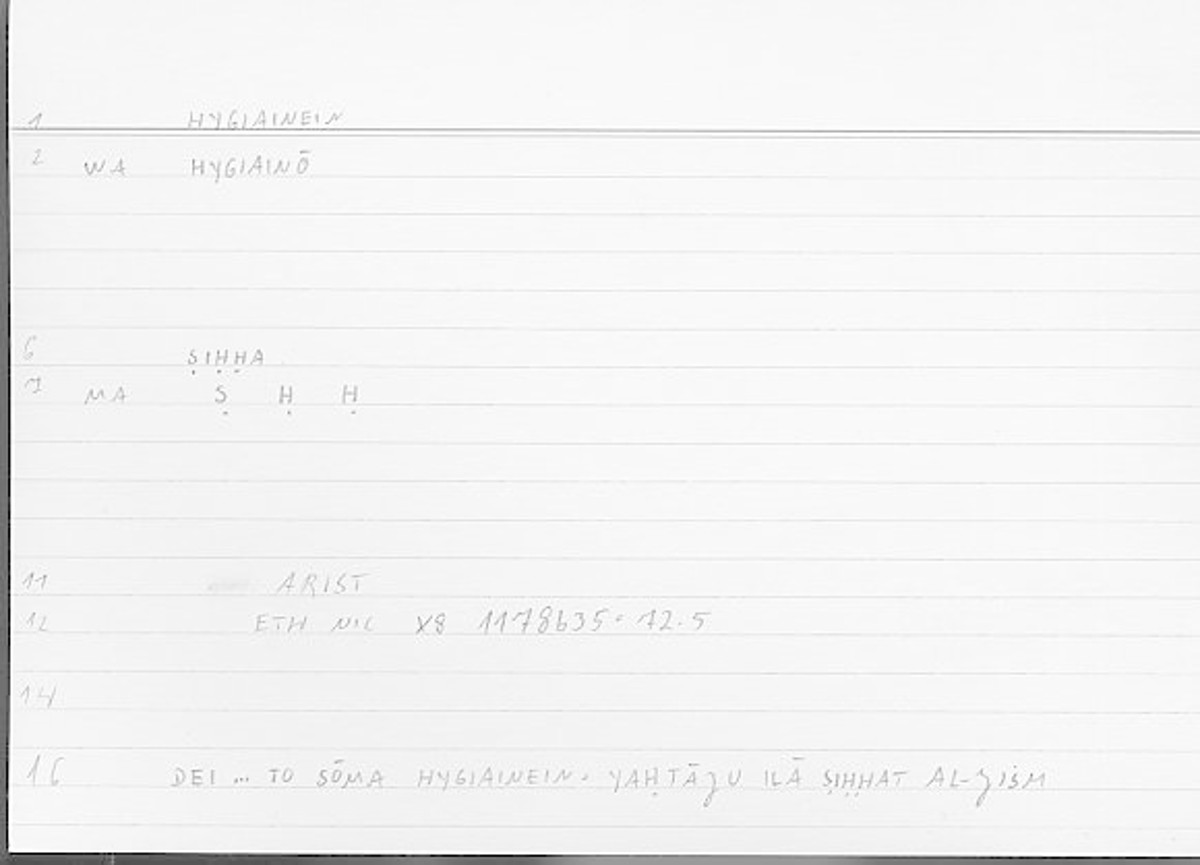 1 HYGIAINEIN
2 WA HYGIAINŌ
6 ṢIḤḤA
7 MA Ṣ Ḥ Ḥ
11 ARIST
12 ETH NIC X8 1178b35: 12.5
14
16 DEI ... TO SŌMA HYGIAINEIN. YAḤTĀǧU ILĀ ṢIḤḤAT AL-ǧISM